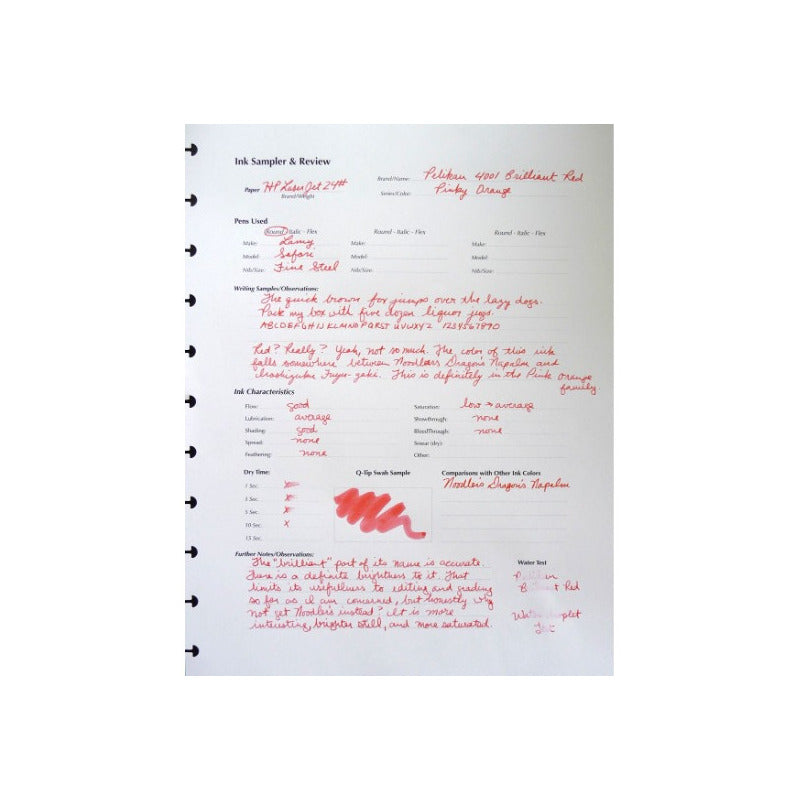 Ink Sampler & Review
Brand/Name: Pelikan 4001 Brilliant Red
Paper HP LaserJet 24#
Brand/Weight
Series/Color: Pinky Orange
Pens Used
Round - Italic - Flex Round - Italic - Flex Round - Italic - Flex
Make: Lamy Make: Make:
Model: Safari Model: Model:
Nib/Size: Fine Steel Nib/Size: Nib/Size:
Writing Samples/Observations:
The quick brown fox jumps over the lazy dogs.
Pack my box with five dozen liquor jugs.
ABCDEFGHIJKLMNOPQRSTUVWXYZ 1234567890
Red? Really? Yeah, not so much. The color of this ink
falls somewhere between Noodlers Dragon's Napalm and
Iroshizuku Fuyu-gaki. This is definitely in the Pink orange
family.
Ink Characteristics
Flow: good Saturation: low → average
Lubrication: average ShowThrough: none
Shading: good BleedThrough: none
Spread: none Smear (dry):
Feathering: none Other:
Dry Time: Q-Tip Swab Sample Comparisons with Other Ink Colors
1 Sec. Noodler's Dragon's Napalm
3 Sec.
5 Sec.
10 Sec. X
15 Sec.
Further Notes/Observations: Water Test
The "brilliant" part of its name is accurate.
There is a definite brightness to it. That
limits its usefulness to editing and grading
so far as I am concerned, but honestly why
not get Noodler's instead? It is more
interesting, brighter still, and more saturated.
Pelikan
Red
Water Droplet